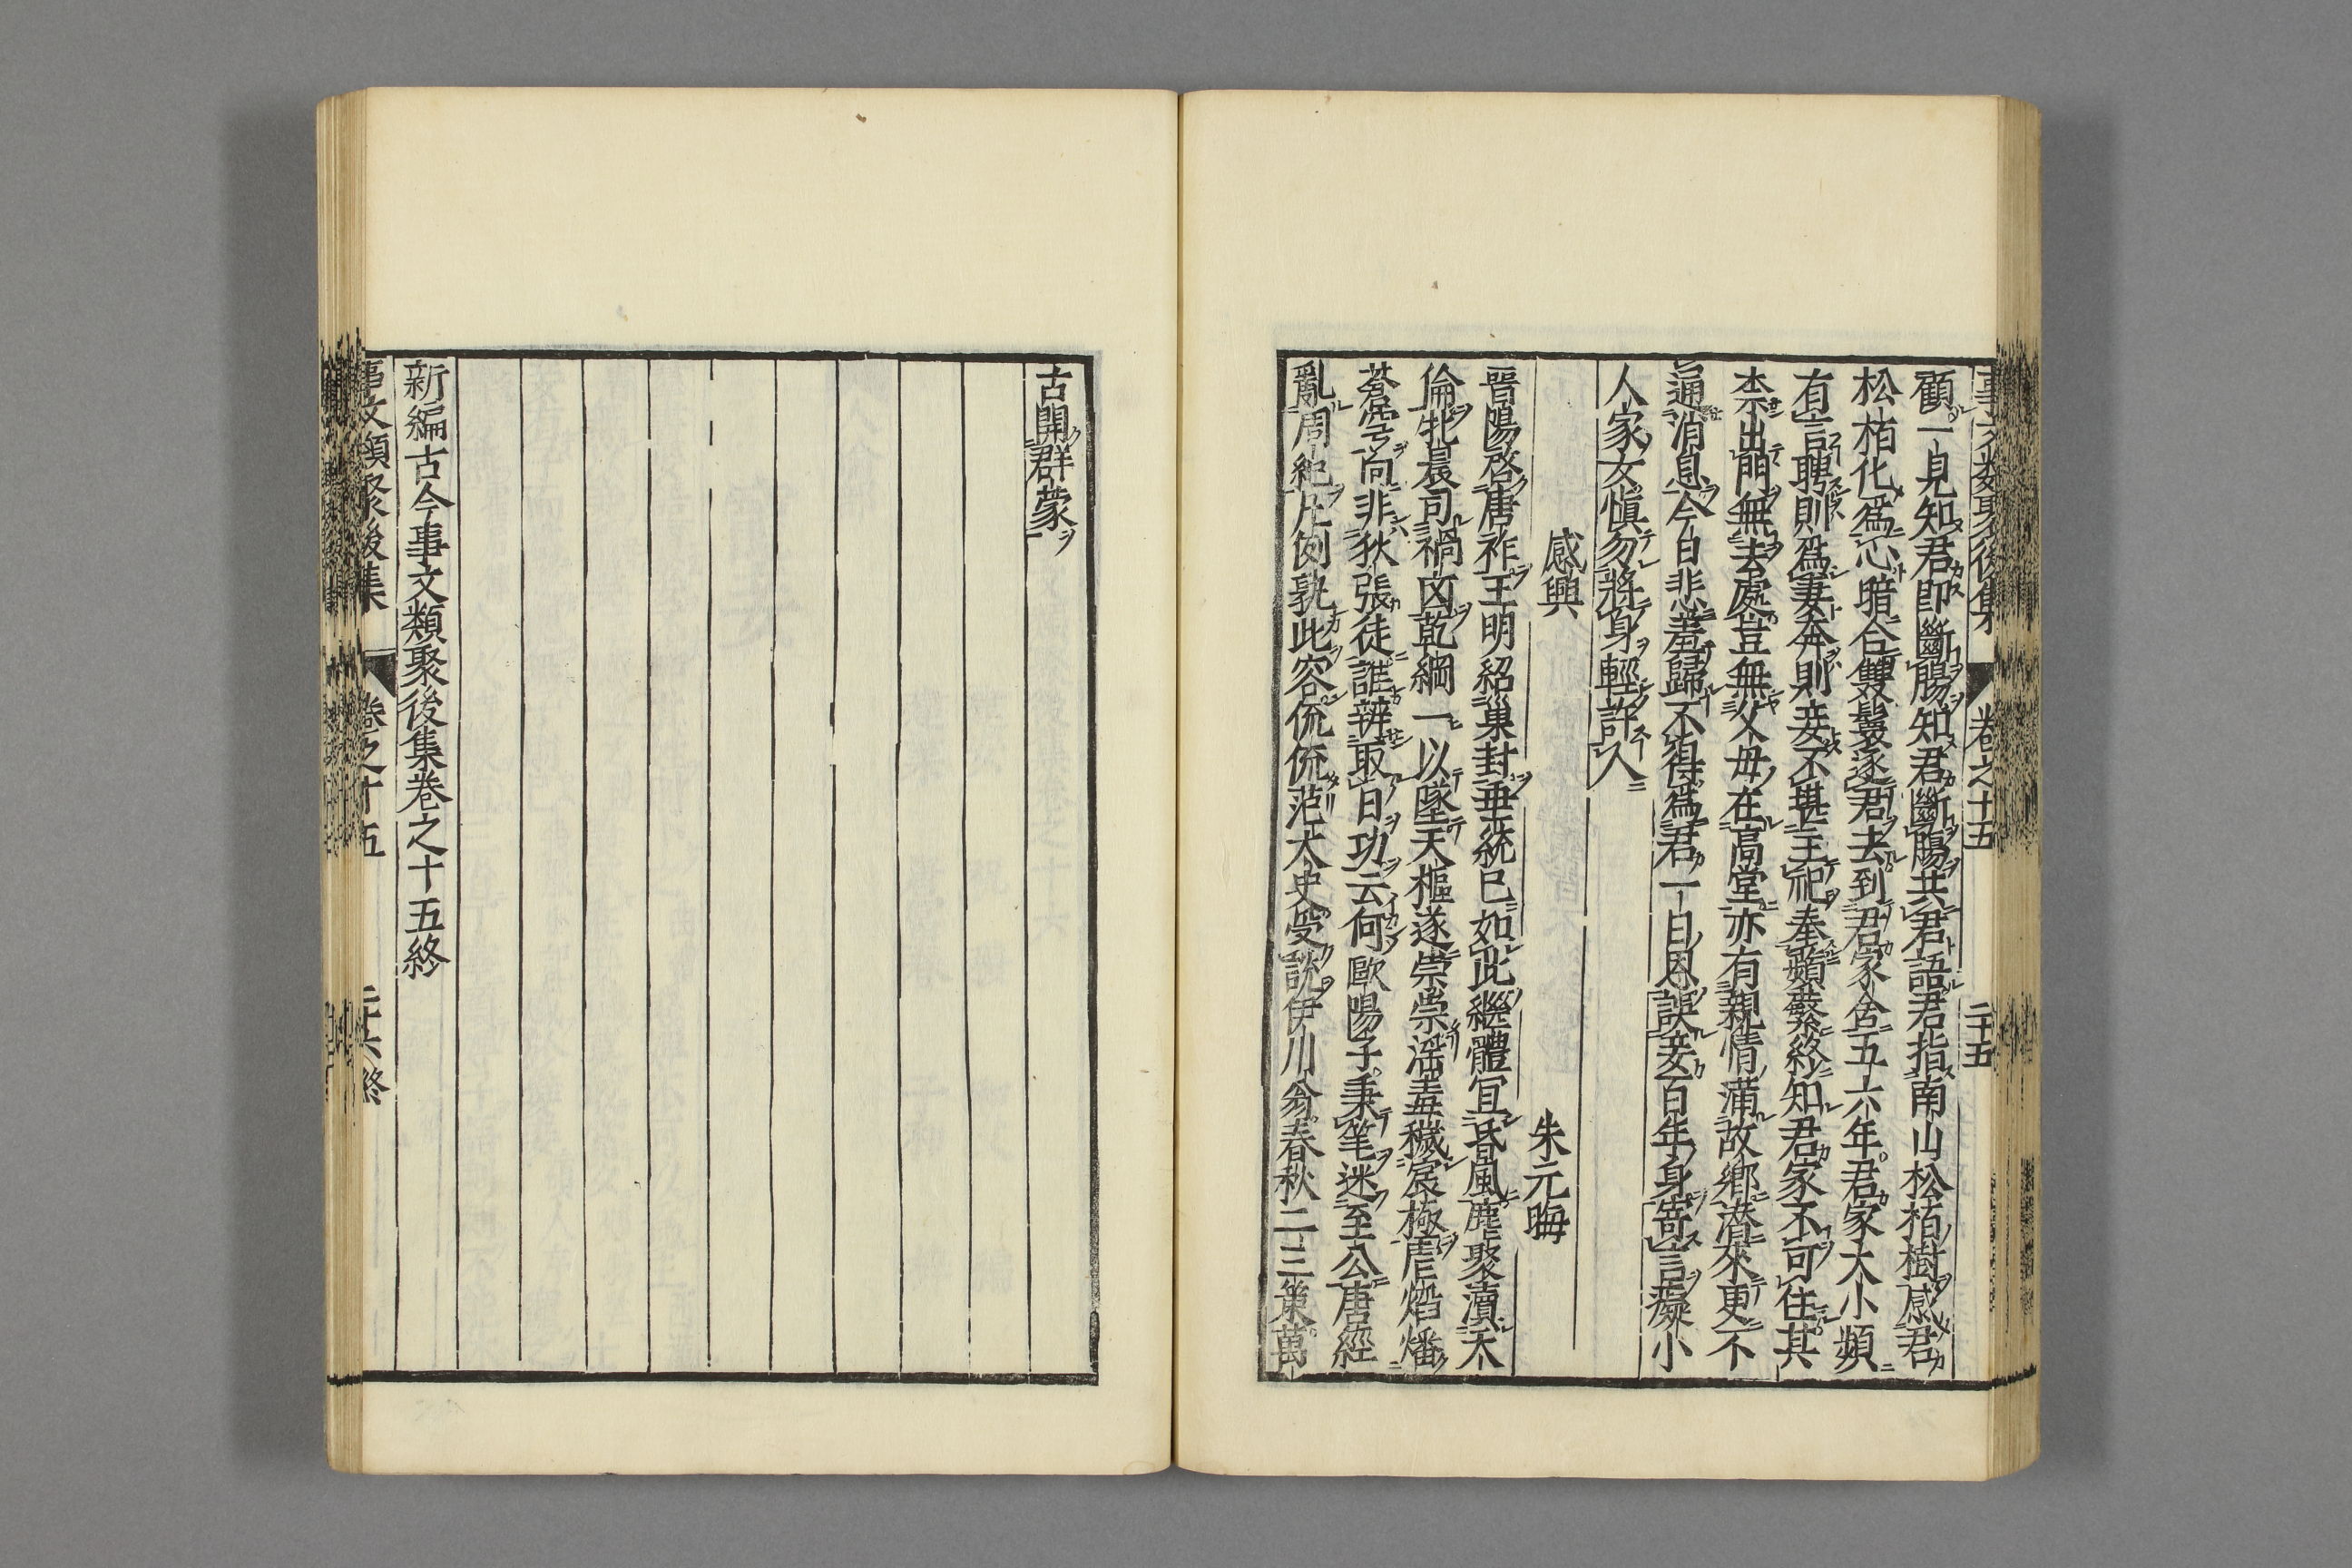 事文類聚後集 卷之十五 二十五
顧一見知君即斷腸知君斷腸共君語君指南山松栢樹感君
松栢化爲心暗合雙鬟逐君去到君家舎五六年君家大小頻
有言聘則爲妻奔則妾不堪主祀奉蘋蘩終知君家不可住其
柰出門無去處豈無父母在高堂亦有親情滿故鄉潜來更不
通消息今日悲羞歸不得爲君一日恩誤妾百年身寄言癡小
人家女慎勿將身輕許人
感興 朱元晦
晉陽啓唐祚王明紹巢封垂統已如此繼體冝昏風麀聚瀆天
倫牝晨司禍凶乾綱一以墜天樞遂崇崇滛毒穢宸極虐熖燔
蒼穹向非狄張徒誰辨取日功云何歐陽子秉筆迷至公唐經
亂周紀凡例孰此容侃侃范太史受說伊川翁春秋二三策萬
古開群蒙
新編古今事文類聚後集卷之十五終
事文類聚後集 卷之十五 二十六終